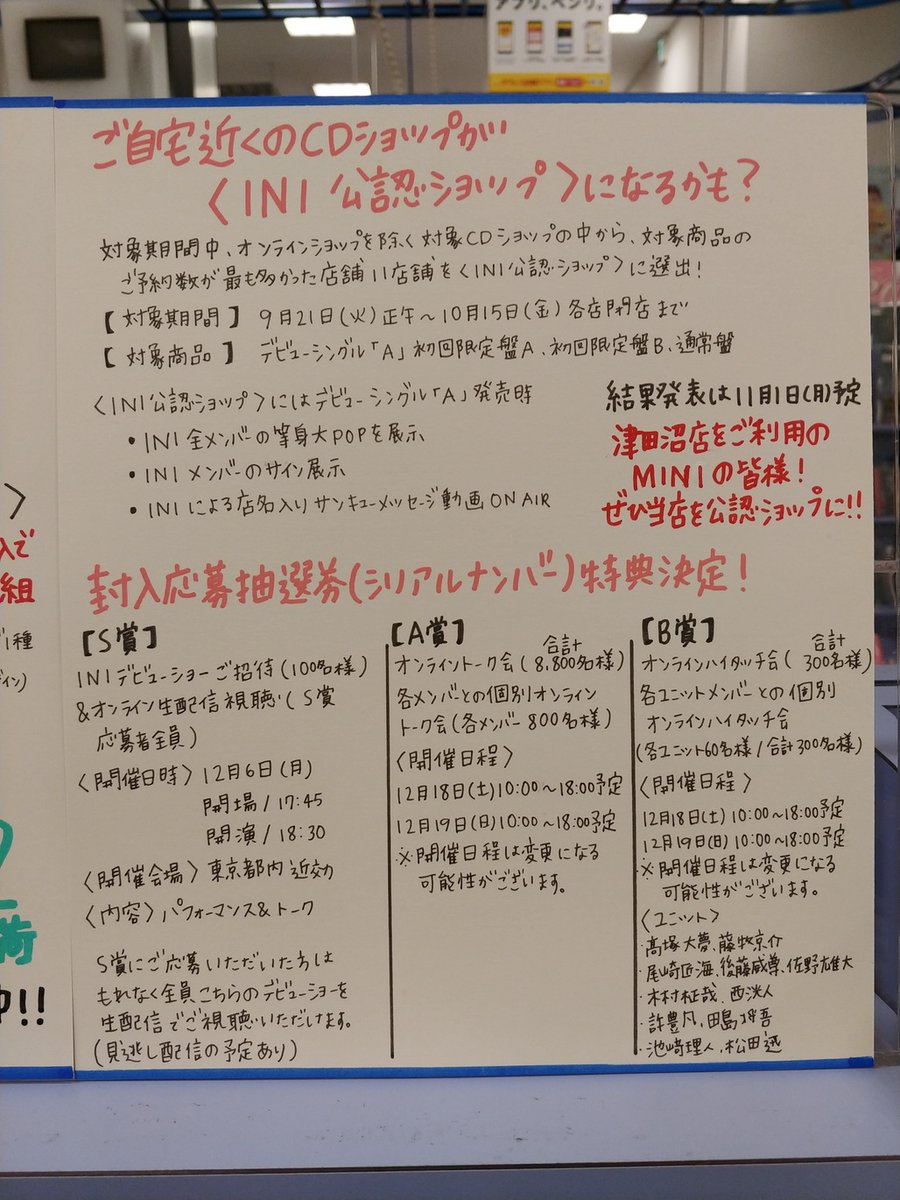 アプリ、ペンシ、
ご自宅近くのCDショップが
〈INI 公認ショップ〉になるかも?
対象期間中、オンラインショップを除く対象CDショップの中から、対象商品の
ご予約数が最も多かった店舗11店舗を〈INI公認ショップ〉に選出!
【対象期間】 9月21日(火)正午~10月15日(金)各店閉店まで
【対象商品】 デビューシングル「A」初回限定盤A、初回限定盤B、通常盤
〈INI公認ショップ〉にはデビューシングル「A」発売時
• INI全メンバーの等身大POPを展示
• INIメンバーのサイン展示
• INIによる店名入りサンキューメッセージ動画ON AIR
結果発表は11月1日(月)予定
津田沼店をご利用の
MINIの皆様!
ぜひ当店を公認ショップに!!
封入応募抽選券(シリアルナンバー)特典決定!
【S賞】
INIデビューショーご招待(100名様)
&オンライン生配信視聴(S賞
応募者全員)
〈開催日時〉12月6日(月)
開場/17:45
開演/18:30
〈開催会場〉東京都内近効
〈内容〉パフォーマンス&トーク
S賞にご応募いただいた方は
もれなく全員こちらのデビューショーを
生配信でご視聴いただけます。
(見逃し配信の予定あり)
【A賞】
オンライントーク会(合計8,800名様)
各メンバーとの個別オンライン
トーク会(各メンバー800名様)
〈開催日程〉
12月18日(土)10:00~18:00予定
12月19日(日)10:00~18:00予定
※開催日程は変更になる
可能性がございます。
【B賞】
オンラインハイタッチ会(合計300名様)
各ユニットメンバーとの個別
オンラインハイタッチ会
(各ユニット60名様/合計300名様)
〈開催日程〉
12月18日(土)10:00~18:00予定
12月19日(日)10:00~18:00予定
※開催日程は変更になる
可能性がございます。
〈ユニット〉
・髙塚大夢、藤牧京介
・尾崎匠海、後藤威尊、佐野雄大
・木村柾哉、西洸人
・許豊凡、田島将吾
・池﨑理人、松田迅
〉
入で
組
1種
イン)
術
中!!